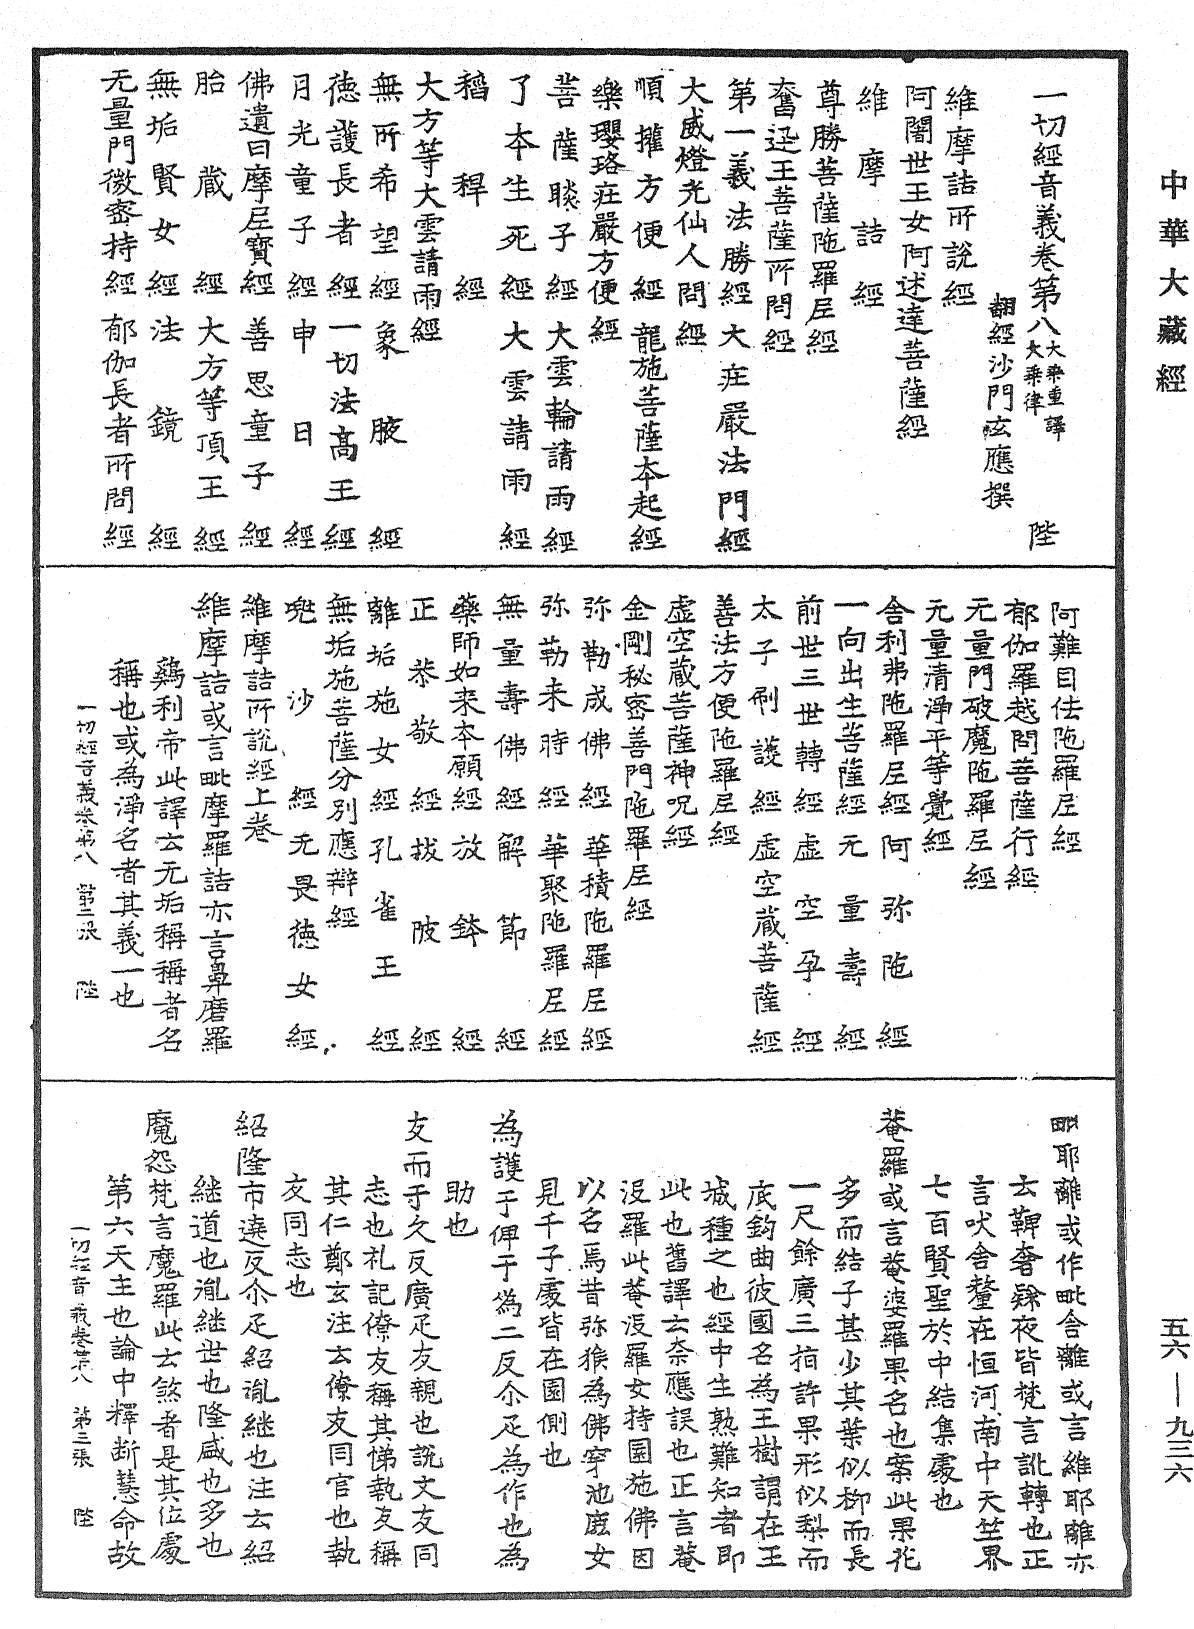 中華大藏經
一切經音義卷第八 大乘重譯 大乘律 陛
翻經沙門玄應撰
維摩詰所說經
阿闍世王女阿述達菩薩經
維摩詰經
尊勝菩薩陁羅尼經
奮迅王菩薩所問經
第一義法勝經 大莊嚴法門經
大威燈光仙人問經
順權方便經 龍施菩薩本起經
樂瓔珞莊嚴方便經
菩薩睒子經 大雲輪請雨經
了本生死經 大雲請雨經
稻稈經
大方等大雲請雨經
無所希望經 象腋經
德護長者經 一切法高王經
月光童子經 申日經
佛遺曰摩尼寶經 善思童子經
胎藏經 大方等頂王經
無垢賢女經 法鏡經
无量門微密持經 郁伽長者所問經
阿難目佉陁羅尼經
郁伽羅越問菩薩行經
无量門破魔陁羅尼經
无量清淨平等覺經
舍利弗陁羅尼經 阿弥陁經
一向出生菩薩經 无量壽經
前世三世轉經 虛空孕經
太子刷護經 虛空藏菩薩經
善法方便陁羅尼經
虛空藏菩薩神呪經
金剛秘密善門陁羅尼經
弥勒成佛經 華積陁羅尼經
弥勒来時經 華聚陁羅尼經
無量壽佛經 解節經
藥師如来本願經 放鉢經
正恭敬經 拔陂經
離垢施女經 孔雀王經
無垢施菩薩分別應辯經
兜沙經 无畏德女經
維摩詰所說經上卷
維摩詰或言毗摩羅詰亦言鼻磨羅
鷄利帝此譯云无垢稱稱者名
稱也或為淨名者其義一也
一切經音義卷第八 第二張 陛
毗耶離或作毗舍離或言維耶離亦
云鞞奢隸夜皆梵言訛轉也正
言吠舍釐在恒河南中天竺界
七百賢聖於中結集處也
菴羅或言菴婆羅果名也案此果花
多而結子甚少其葉似柳而長
一尺餘廣三指許果形似梨而
底鈎曲彼國名為王樹謂在王
城種之也經中生熟難知者即
此也舊譯云柰應誤也正言菴
沒羅此菴沒羅女持園施佛因
以名焉昔弥猴為佛穿池鹿女
見千子處皆在園側也
為護于俾于為二反尒疋為作也為
助也
友而于久反廣疋友親也說文友同
志也礼記僚友稱其悌執友稱
其仁鄭玄注云僚友同官也執
友同志也
紹隆市遶反尒疋紹胤継也注云紹
継道也胤継世也隆盛也多也
魔怨梵言魔羅此云煞者是其位處
第六天主也論中釋断慧命故
一切經音義卷第八 第三張 陛
五六—九三六